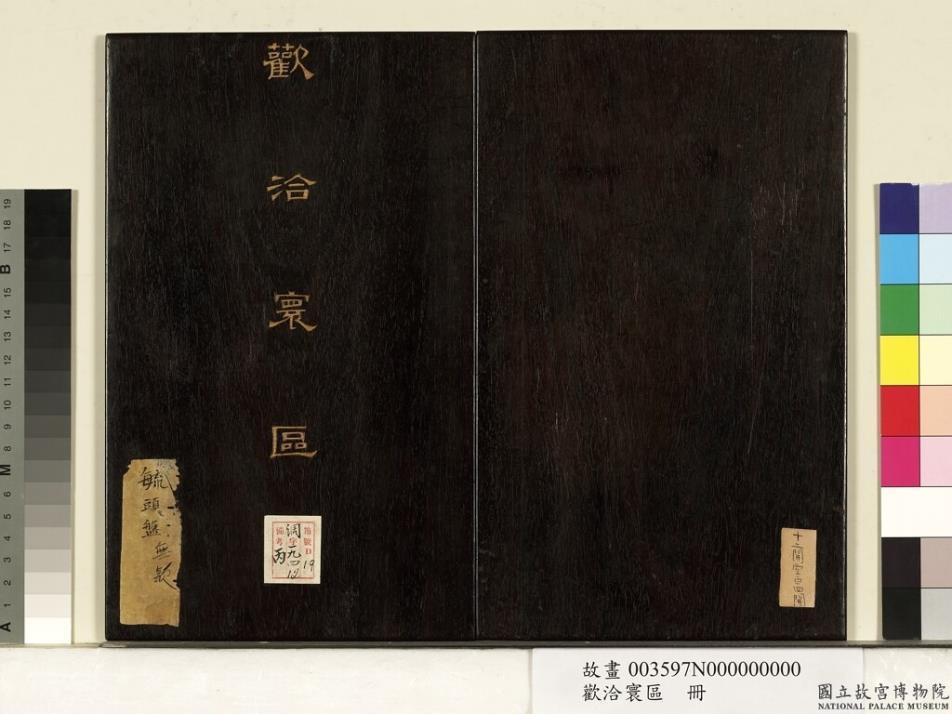 歡洽寰區
毓慶
頭盤無款
箱號
調字九四
19
12
備考 丙
十二開空白四開
19 18 17 B 15 14 13 12 11 10 9 8 M 6 5 4 3 2 1 A
故畫 003597N000000000
歡洽寰區 冊
國立故宮博物院
NATIONAL PALACE MUSEUM